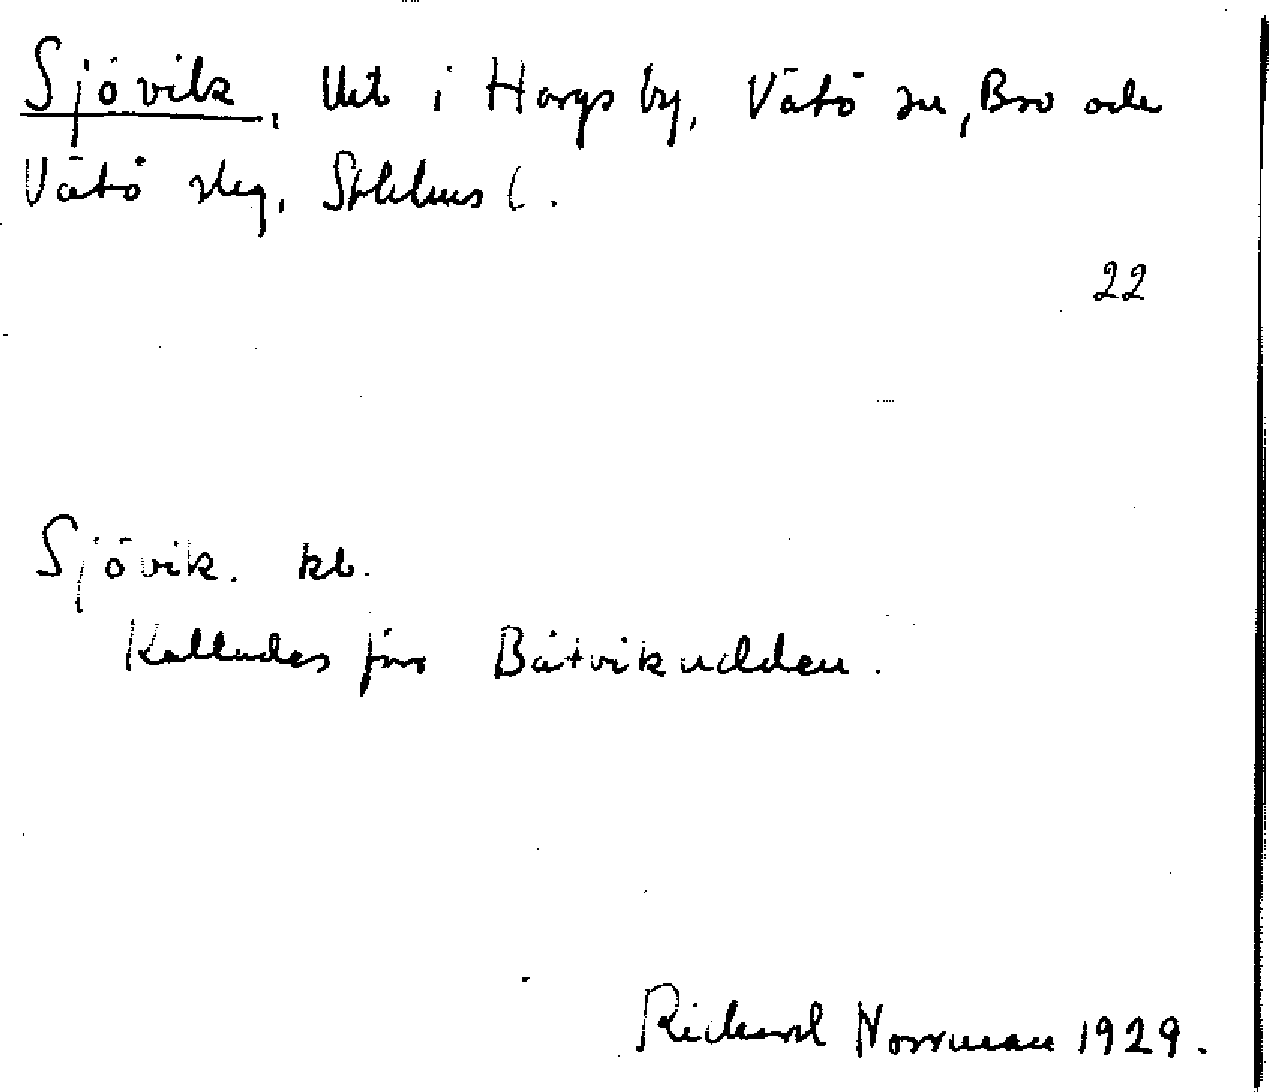 Sjövik, Utb i Hargs by, Vätö sn, Bro och
Vätö slg, Sthlms l.
22
Sjövik. kb.
Kallades förr Båtvikudden.
Richard Norrman 1929.